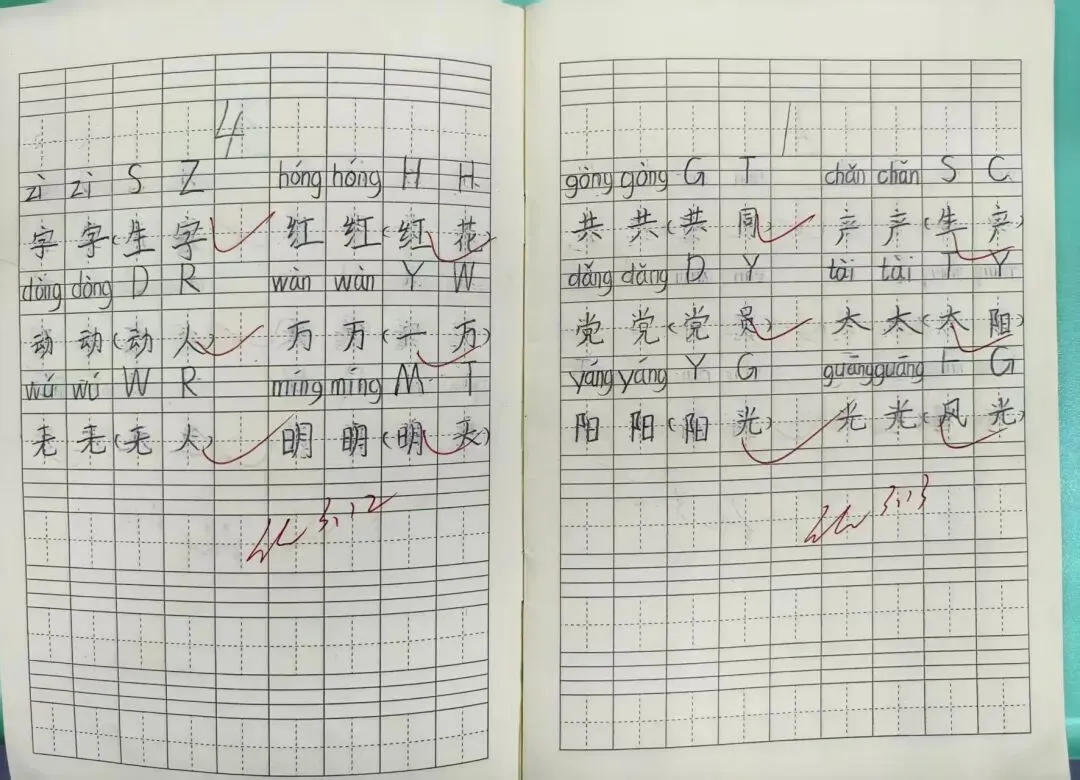 4
zì zì S Z hóng hóng H H
字 字(生 字) 红 红(红 花)
dòng dòng D R wàn wàn Y W
动 动(动 人) 万 万(一 万)
wú wú W R míng míng M T
人) 明 明(明
3.12
1
gòng gòng G T chǎn chǎn S C
共 共(共 同) 产 产(生 产)
dǎng dǎng D Y tài tài T Y
党 党(党 员) 太 太(太 阳)
yáng yáng Y G guāng guāng F G
阳 阳(阳 光) 光 光(风 光)
3.13